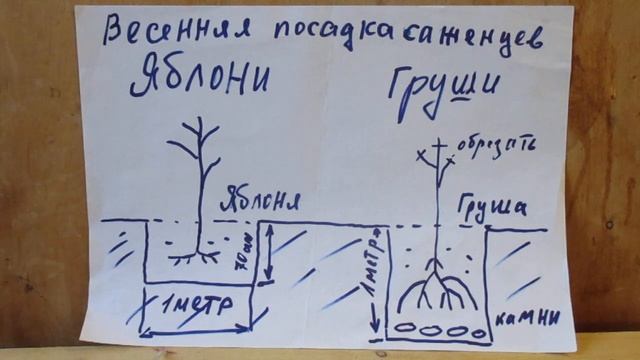 Весенняя посадка саженцев
Яблони
Груши
обрезать
Яблоня
Груша
70 см
1 метр
1 метр
камни